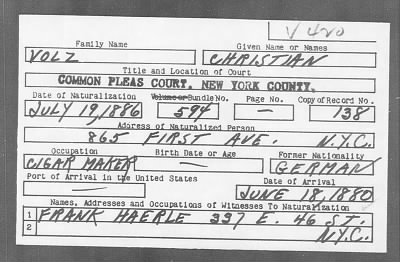 V 420
Family Name Given Name or Names
VOLZ CHRISTIAN
Title and Location of Court
COMMON PLEAS COURT, NEW YORK COUNTY.
Date of Naturalization Volume or Bundle No. Page No. Copy of Record No.
JULY 19, 1886 594 — 138
Address of Naturalized Person
865 FIRST AVE. N.Y.C.
Occupation Birth Date or Age Former Nationality
CIGAR MAKER — GERMAN
Port of Arrival in the United States Date of Arrival
— JUNE 18, 1880
Names, Addresses and Occupations of Witnesses To Naturalization
1 FRANK HAERLE 337 E. 46 ST.
2 N.Y.C.